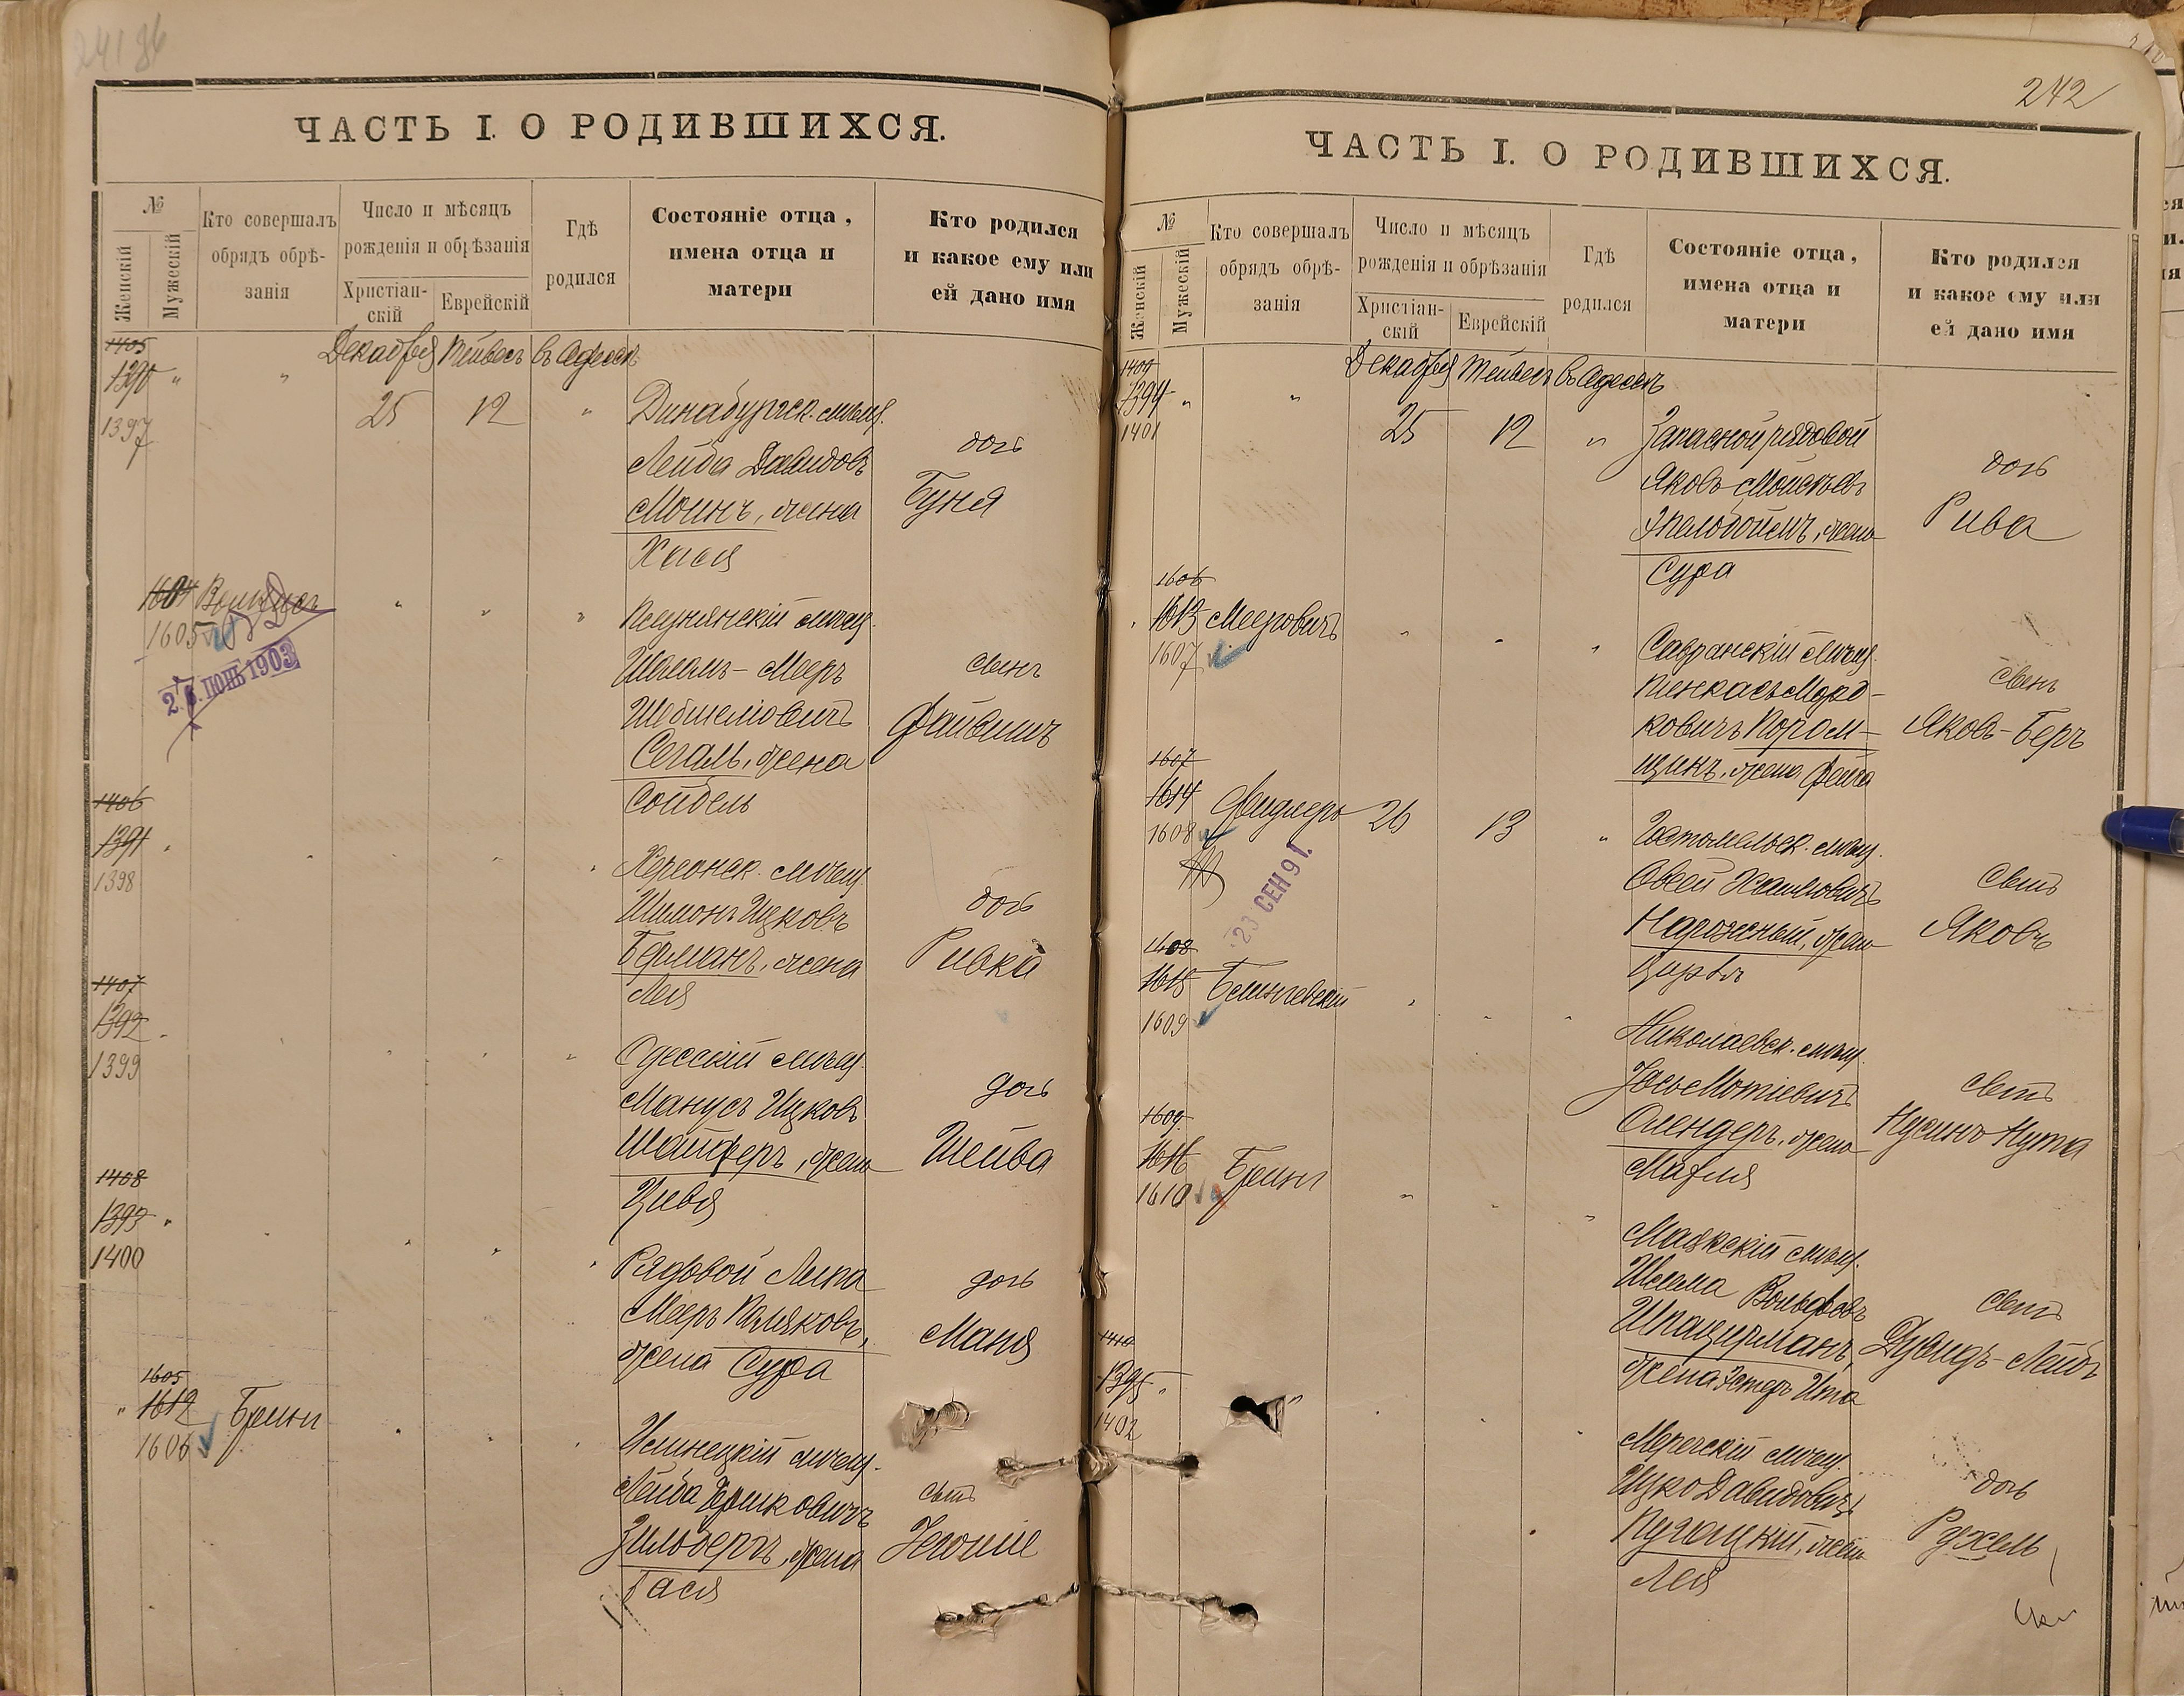 242
ЧАСТЬ I. О РОДИВШИХСЯ.
№
Женскій
Мужескій
Кто совершалъ
обрядъ обрѣ-
занія
Число и мѣсяцъ
рожденія и обрѣзанія
Христіан-
скій
Еврейскій
Гдѣ
родился
Состояніе отца,
имена отца и
матери
Кто родился
и какое ему или
ей дано имя
Декабря Тейвес въ Одессѣ
1405
1390
1397
25 12
Динабургск. мѣщ.
Лейба Давидовъ
Моинъ, жена
Хася
дочь
Буня
1604
1605
27 ІЮН 1903
мѣщ.
Шоелъ-Мееръ
Сегалъ, жена
Сойбель
сынъ
Файвишъ
1406
1391
1398
Херсонск. мѣщ.
Шимонъ Ицковъ
Берманъ, жена
Лея
дочь
Ривка
1407
1392
1399
Одесскій мѣщ.
Манусъ Ицковъ
Шайферъ, жена
Цивя
дочь
Шейва
1408
1393
1400
Рядовой Липа
Мееръ Поляковъ,
жена Сура
дочь
Маня
1605
1612
1606
Брынъ
Илинецкій мѣщ.
Лейба Гершковичъ
Зильбергъ, жена
Бася
сынъ
ЧАСТЬ I. О РОДИВШИХСЯ.
№
Женскій
Мужескій
Кто совершалъ
обрядъ обрѣ-
занія
Число и мѣсяцъ
рожденія и обрѣзанія
Христіан-
скій
Еврейскій
Гдѣ
родился
Состояніе отца,
имена отца и
матери
Кто родился
и какое ему или
ей дано имя
Декабря Тейвес въ Одессѣ
1409
1394
1401
25 12
Запасной рядовой
Яковъ Моисѣевъ
жена
Сура
дочь
Рива
1606
1613
1607
Мееровичъ
Савранскій мѣщ.
Пинкасъ Морд-
ковичъ Корам-
щикъ, жена Фейга
сынъ
Яковъ-Беръ
1607
1614
1608
Фидлеръ 26 13
23 СЕН 91.
Гостомельск. мѣщ.
Овсей Хаимовичъ
Нарожный, жена
Цирля
сынъ
Яковъ
1608
1615
1609
Белинчевскій
Николаевск. мѣщ.
Іось Мотіевичъ
Олендеръ, жена
Марія
сынъ
Нусинъ Нута
1609
1616
1610
Брынъ
Маякскій мѣщ.
Шлема Вольфовъ
Шпацирманъ,
жена Эстеръ Ита
сынъ
Дувидъ-Лейбъ
1410
1395
1402
Меречскій мѣщ.
Ицко Давидовичъ
жена
Лея
дочь
Рухель